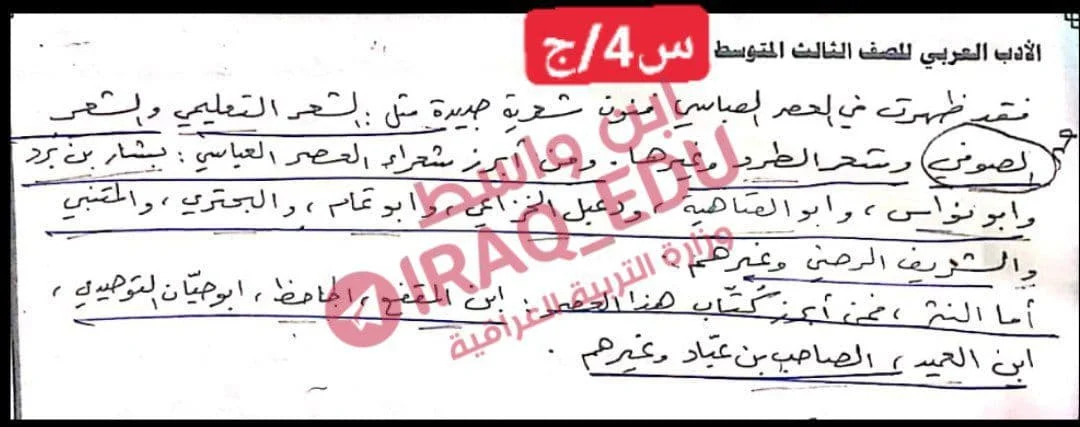 الأدب العربي للصف الثالث المتوسط
س4/ج
فقد ظهرت في العصر العباسي فنون شعرية جديدة مثل: الشعر التعليمي والشعر
الصوفي وشعر الطرد وغيرها. ومن أبرز شعراء العصر العباسي: بشار بن برد
وابو نواس، وابو العتاهية، ودعبل الخزاعي، وابو تمام، والبحتري، والمتنبي
والشريف الرضي وغيرهم.
أما النثر، فمن أبرز كُتّاب هذا العصر: ابن المقفع، الجاحظ، ابو حيّان التوحيدي،
ابن العميد، الصاحب بن عبّاد وغيرهم.
ابن واسط
IRAQ_EDU
وزارة التربية العراقية